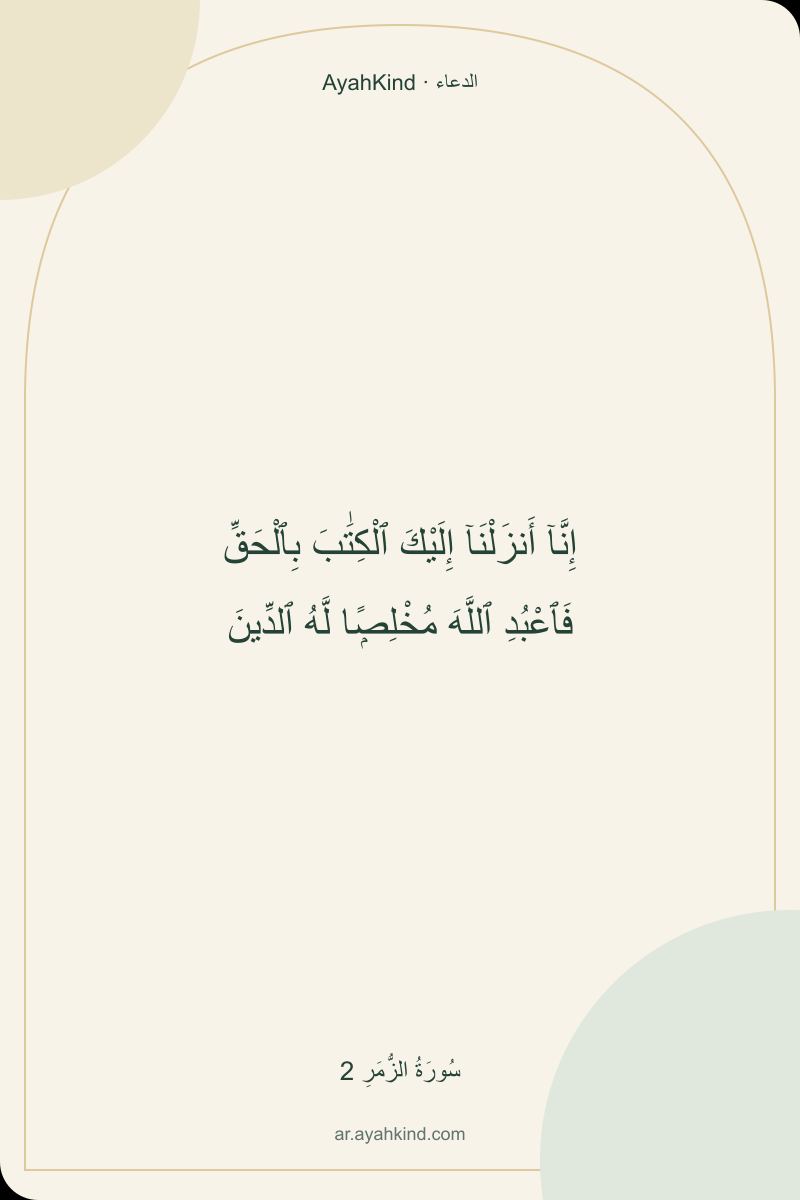 AyahKind · الدعاء
إِنَّآ أَنزَلْنَآ إِلَيْكَ ٱلْكِتَٰبَ بِٱلْحَقِّ
فَٱعْبُدِ ٱللَّهَ مُخْلِصًۭا لَّهُ ٱلدِّينَ
سُورَةُ الزُّمَرِ 2
ar.ayahkind.com